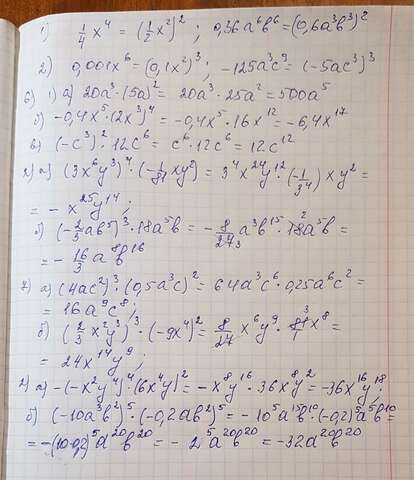 1) 1/4 x⁴ = (1/2 x²)²; 0,36a⁶b⁶ = (0,6a³b³)²
2) 0,001x⁶ = (0,1x²)³; -125a³c⁹ = (-5ac³)³
6) 1) а) 20a³·(5a)² = 20a³·25a² = 500a⁵
б) -0,4x⁵·(2x³)⁴ = -0,4x⁵·16x¹² = -6,4x¹⁷
в) (-c³)²·12c⁶ = c⁶·12c⁶ = 12c¹²
2) а) (3x⁶y³)⁴·(-1/81 xy²) = 3⁴x²⁴y¹²·(-1/3⁴)xy² =
= -x²⁵y¹⁴;
б) (-2/3 ab⁵)³·18a⁵b = -8/27₃ a³b¹⁵·18²a⁵b =
= -16/3 a⁸b¹⁶
7) а) (4ac²)³·(0,5a³c)² = 64a³c⁶·0,25a⁶c² =
= 16a⁹c⁸;
б) (2/3 x²y³)³·(-9x⁴)² = 8/27 x⁶y⁹·81³x⁸ =
= 24x¹⁴y⁹;
2) а) -(-x²y⁴)⁴·(6x⁴y)² = -x⁸y¹⁶·36x⁸y² = -36x¹⁶y¹⁸;
б) (-10a³b²)⁵·(-0,2ab²)⁵ = -10⁵a¹⁵b¹⁰·(-0,2)⁵a⁵b¹⁰ =
= -(10·0,2)⁵a²⁰b²⁰ = -2⁵a²⁰b²⁰ = -32a²⁰b²⁰